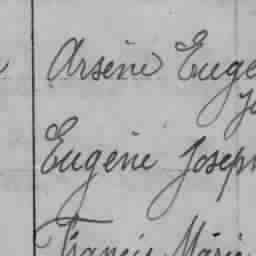 Arsène Euge
Je
Eugène Joseph
Francis Marie